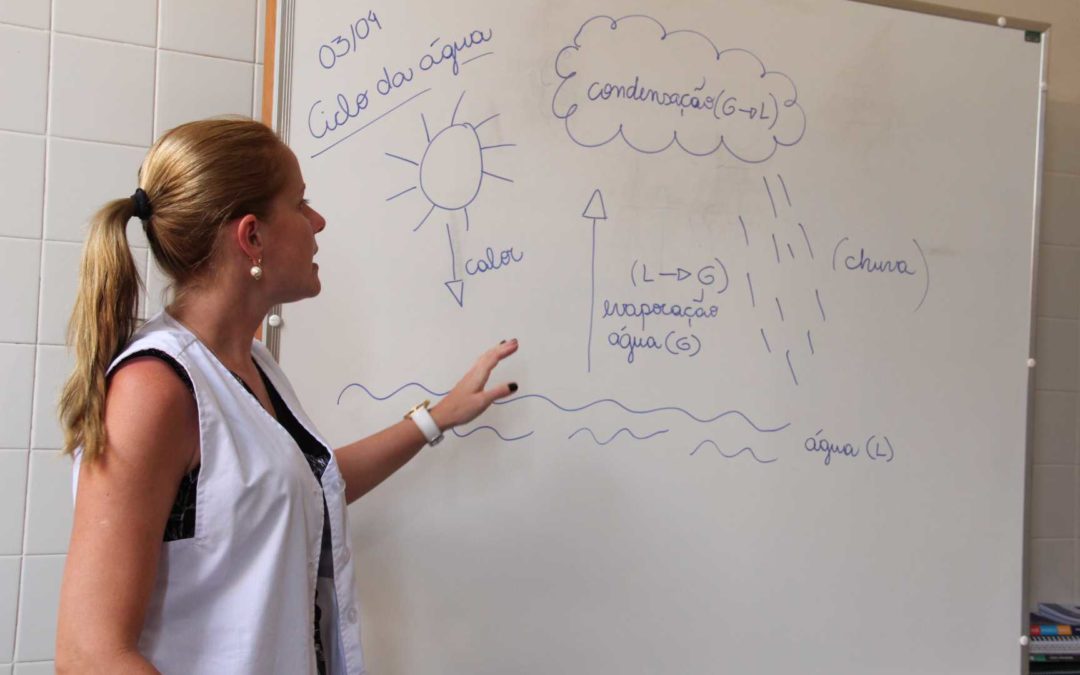 03/04
Ciclo da água
condensação (G→L)
calor
(L→G)
evaporação
água (G)
(chuva)
água (L)